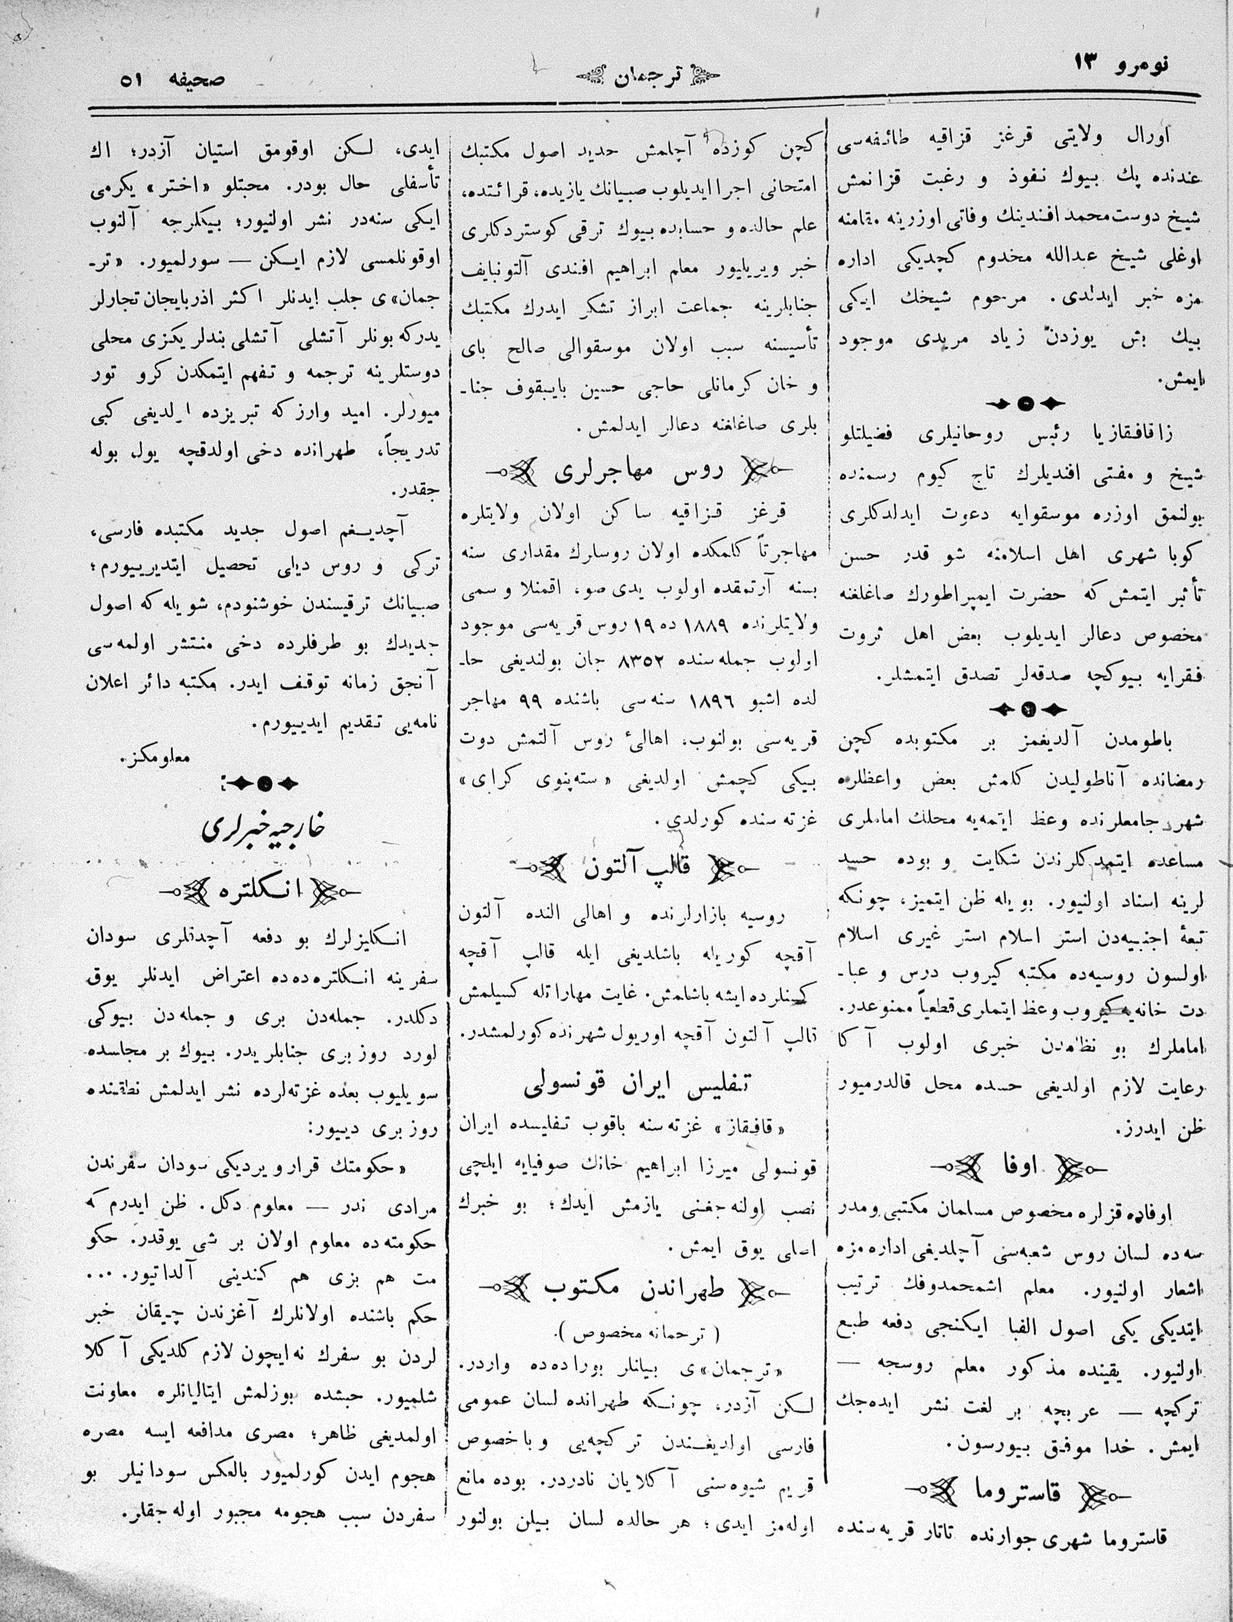 نومرو ١٣
ترجمان
صحيفه ٥١
اورال ولايتى قرغز قزاقيه طائفه‌سى
عندنده پك بيوك نفوذ و رغبت قزانمش
شيخ دوست محمد افندينك وفاتى اوزرينه مقامنه
اوغلى شيخ عبدالله مخدوم كچديكى اداره
مزه خبر ايدلدى. مرحوم شيخك ايكى
بيك بش يوزدن زياد مريدى موجود
ايمش.
زاقافقازيا رئيس روحانيلرى فضيلتلو
شيخ و مفتى افنديلرك تاج كيوم رسمنده
بولنمق اوزره موسقوايه دعوت ايدلدكلرى
كوبا شهرى اهل اسلامنه شو قدر حسن
تأثير ايتمش كه حضرت ايمپراطورك صاغلغنه
مخصوص دعالر ايديلوب بعض اهل ثروت
فقرايه بيوكچه صدقه‌لر تصدق ايتمشلر.
باطومدن آلديغمز بر مكتوبده كچن
رمضانده آناطوليدن كلمش بعض واعظلره
شهر جامعلرنده وعظ ايتمه‌يه محلك اماملرى
مساعده ايتمدكلرندن شكايت و بوده حسد
لرينه اسناد اولنيور. بويله ظن ايتميز، چونكه
تبعۀ اجنبيه‌دن استر اسلام استر غيرى اسلام
اولسون روسيه‌ده مكتبه كيروب درس و عبا-
دت خانه‌يه كيروب وعظ ايتملرى قطعياً ممنوعدر.
اماملرك بو نظامدن خبرى اولوب آكا
رعايت لازم اولديغى حسده محل قالدرميور
ظن ايدرز.
اوفا
اوفاده قزلره مخصوص مسلمان مكتبى و مدر
سه‌ده لسان روس شعبه‌سى آچلديغى اداره مزه
اشعار اولنيور. معلم اشمحمدوفك ترتيب
ايتديكى يكى اصول الفبا ايكنجى دفعه طبع
اولنيور. يقينده مذكور معلم روسجه —
تركچه — عربچه بر لغت نشر ايده‌جك
ايمش. خدا موفق بيورسون.
قاستروما
قاستروما شهرى جوارنده تاتار قريه‌سنده
كچن كوزده آچلمش جديد اصول مكتبك
امتحانى اجرا ايديلوب صبيانك يازيده، قرائتده،
علم حالده و حسابده بيوك ترقى كوستردكلرى
خبر ويريليور معلم ابراهيم افندى آلتونبايف
جنابلرينه جماعت ابراز تشكر ايدرك مكتبك
تأسيسنه سبب اولان موسقوالى صالح باى
و خان كرمانلى حاجى حسين بايبقوف جنا-
بلرى صاغلغنه دعالر ايدلمش.
روس مهاجرلرى
قرغز قزاقيه ساكن اولان ولايتلره
مهاجرتاً كلمكده اولان روسلرك مقدارى سنه
بسنه آرتمقده اولوب يدى صو، اقمنلا و سمى
ولايتلرنده ١٨٨٩ ده ١٩ روس قريه‌سى موجود
اولوب جمله‌سنده ٨٣٥٢ جان بولنديغى حا-
لده اشبو ١٨٩٦ سنه‌سى باشنده ٩٩ مهاجر
قريه‌سى بولنوب، اهالئ روس آلتمش دوت
بيكى كچمش اولديغى «سته‌پنوى كراى»
غزته سنده كورلدى.
قالپ آلتون
روسيه بازارلرنده و اهالى النده آلتون
آقچه كوريله باشلديغى ايله قالپ آقچه
كسنلرده ايشه باشلمش. غايت مهارتله كسيلمش
قالپ آلتون آقچه اوريول شهرنده كورلمشدر.
تفليس ايران قونسولى
«قافقاز» غزته سنه باقوب تفليسده ايران
قونسولى ميرزا ابراهيم خانك صوفيايه ايلچى
نصب اوله‌جغنى يازمش ايدك؛ بو خبرك
اصلى يوق ايمش.
طهراندن مكتوب
(ترجمانه مخصوص).
«ترجمان»ى بيانلر بوراده‌ده واردر.
لكن آزدر، چونكه طهرانده لسان عمومى
فارسى اولديغندن تركچه‌يى وباخصوص
قريم شيوه‌سنى آكلايان نادردر. بوده مانع
اوله‌مز ايدى؛ هر حالده لسان بيلن بولنور
ايدى، لكن اوقومق استيان آزدر؛ اك
تأسفلى حال بودر. محبتلو «اختر» يكرمى
ايكى سنه‌در نشر اولنيور؛ بيكلرجه آلنوب
اوقونلمسى لازم ايكن — سورلميور. «تر-
جمان»ى جلب ايدنلر اكثر اذربايجان تجارلر
يدركه بونلر آتشلى آتشلى بندلريكزى محلى
دوستلرينه ترجمه و تفهم ايتمكدن كرو تور
ميورلر. اميد وارزكه تبريزده اولديغى كبى
تدريجاً، طهرانده دخى اولدقچه يول بوله
جقدر.
آچديغم اصول جديد مكتبده فارسى،
تركى و روس ديلى تحصيل ايتديرييورم؛
صبيانك ترقيسندن خوشنودم، شويله كه اصول
جديدك بو طرفلرده دخى منتشر اولمه‌سى
آنجق زمانه توقف ايدر. مكتبه دائر اعلان
نامه‌يى تقديم ايدييورم.
معلومكز.
خارجيه خبرلرى
انكلتره
انكليزلرك بو دفعه آچدقلرى سودان
سفرينه انكلتره‌ده‌ده اعتراض ايدنلر يوق
دكلدر. جمله‌دن برى و جمله‌دن بيوكى
لورد روزبرى جنابلريدر. بيوك بر مجلسده
سويليوب بعده غزته‌لرده نشر ايدلمش نطقنده
روزبرى دييور:
«حكومتك قرار ويرديكى سودان سفرندن
مرادى ندر — معلوم دكل. ظن ايدرم كه
حكومته‌ده معلوم اولان بر شى يوقدر. حكو
مت هم بزى هم كندينى آلداتيور....
حكم باشنده اولانلرك آغزندن چيقان خبر
لردن بو سفرك نه‌ايچون لازم كلديكى آكلا
شلميور. حبشده بوزلمش ايتاليانلره معاونت
اولمديغى ظاهر؛ مصرى مدافعه ايسه مصره
هجوم ايدن كورلميور بالعكس سودانيلر بو
سفردن سبب هجومه مجبور اوله‌جقلر.